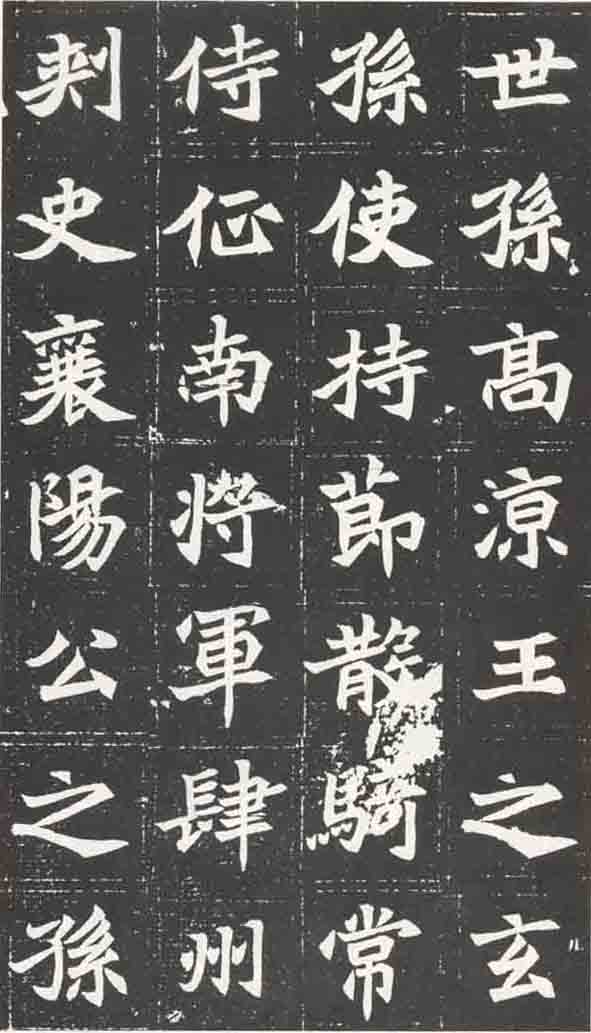 世孫髙涼王之玄
孫使持節散騎常
侍征南將軍肆州
刺史襄陽公之孫